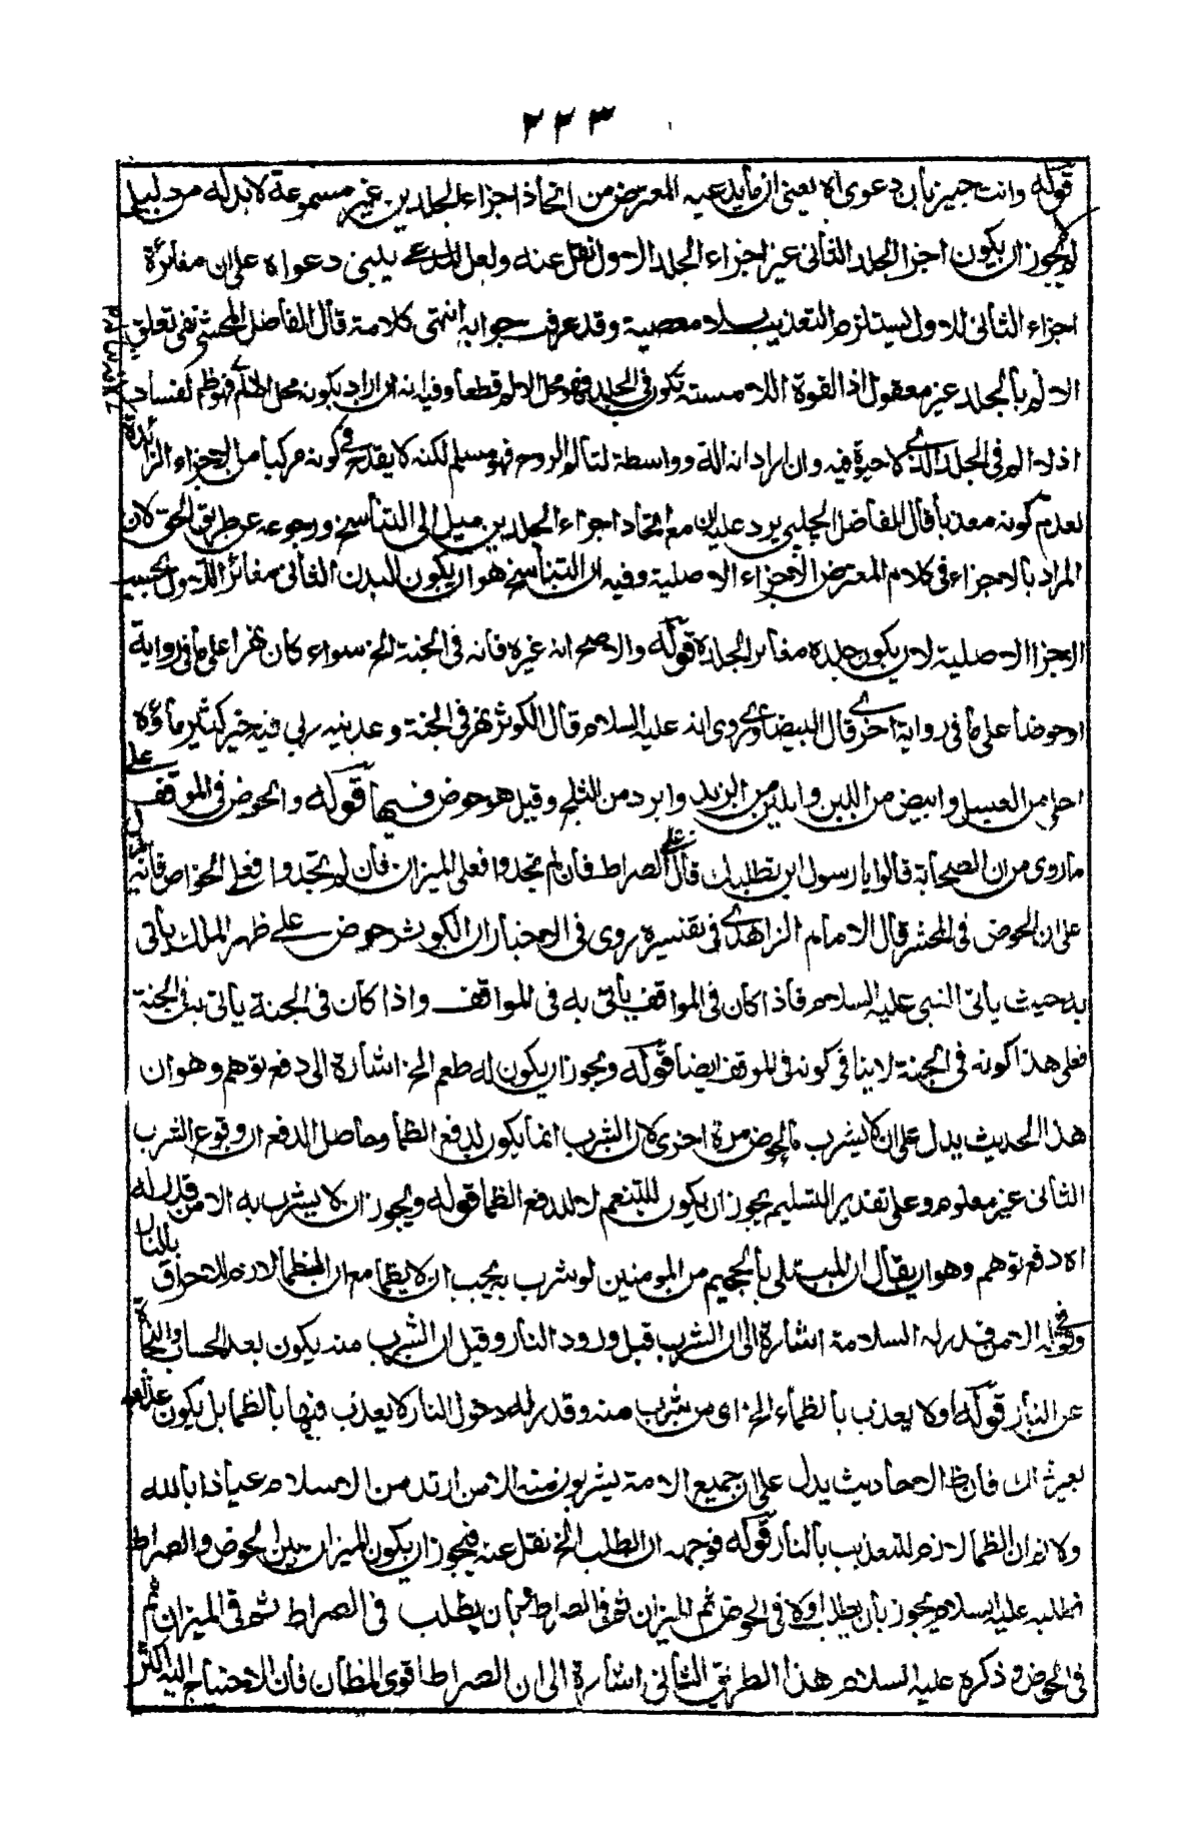 ٢٢٣
قوله وانت خبير بان دعوى اه يعني ان ما يدعيه المعترض من اتحاد اجزاء الجلدين غير مسموعة لا بد له من دليل
لم لا يجوز ان يكون اجزاء الجلد الثاني غير اجزاء الجلد الاول نقل عنه ولعل المدعي يبني دعواه على ان مغائرة
اجزاء الثاني للاول يستلزم التعذيب بلا معصية وقد عرفت جوابه انتهى كلامه قال الفاضل المحشي نفي تعلق
الالم بالجلد غير معقول اذ القوة اللامسة تكون في الجلد فهو محل الالم قطعا وفيه انه ان اراد بكونه محل الالم فهو ظاهر الفساد
اذ لا الم في الجلد الذي لا حيوة فيه وان اراد انه آلة وواسطة لتألم الروح فهو مسلم لكنه لا يقدح في كونه مركبا من الاجزاء الزائدة
لعدم كونه معذبا قال الفاضل الچلپي يرد عليه ان مع اتحاد اجزاء الجلدين ميل الى التناسخ ورجوعه عن طريق الحق لان
المراد بالاجزاء في كلام المعترض الاجزاء الاصلية وفيه ان التناسخ هو ان يكون البدن الثاني مغائر الاول بحسب
الاجزاء الاصلية لا ان يكون جلده مغائر الجلده قوله والاصح انه غيره فانه في الجنة الخ سواء كان نهرا على ما في رواية
او حوضا على ما في رواية اخرى قال البيضاوي روى انه عليه السلام قال الكوثر نهر في الجنة وعدنيه ربي فيه خير كثير ماؤه
احلى من العسل وابيض من اللبن والين من الزبد وابرد من الثلج وقيل هو حوض فيها قوله والحوض في الموقف على
ما روى من ان الصحابة قالوا يا رسول اين نطلبك قال على الصراط فان لم تجدوا فعلى الميزان فان لم تجدوا فعلى الحوض فانه يدل
على ان الحوض في المحشر قال الامام الزاهدي في تفسيره روى في الاخبار ان الكوثر حوض على ظهر الملك يأتي
به حيث يأتي النبي عليه السلام فاذا كان في المواقف يأتي به في المواقف واذا كان في الجنة يأتي به في الجنة
فعلى هذا كونه في الجنة لا ينافي كونه في الموقف ايضا قوله ويجوز ان يكون له طعم الخ اشارة الى دفع توهم وهو ان
هذا الحديث يدل على ان لا يشرب ماء الحوض مرة اخرى لان الشرب انما يكون لدفع الظمأ وحاصل الدفع ان وقوع الشرب
الثاني غير معلوم وعلى تقدير التسليم يجوز ان يكون للتنعم لا لدفع الظمأ قوله ويجوز ان لا يشرب به الا من قدر له
اه دفع توهم وهو ان يقال ان المبتلى بالجحيم من المومنين لو شرب به يجب ان لا يظمأ مع ان الظمأ لازم للاحتراق بالنار
وفي قوله الا من قدر له السلامة اشارة الى ان الشرب قبل ورود النار وقيل ان الشرب منه يكون بعد الحساب والنجاة
عن النار قوله او لا يعذب بالظماء الخ اى من شرب منه وقدر له دخول النار لا يعذب فيها بالظماء بل يكون عذابه
بغير ذلك فان ظاهر الاحاديث يدل على ان جميع الامة يشربون منه الا من ارتد من الاسلام عياذا بالله
ولا لزم ان الظمأ لازم للتعذيب بالنار قوله فوجهه ان الطلب الخ نقل عنه فيجوز ان يكون الميزان بين الحوض والصراط
فطلبه عليه السلام يجوز بان يطلب اولا في الحوض ثم الميزان ثم في الصراط وبان يطلب في الصراط ثم في الميزان ثم
في الحوض وذكره عليه السلام هذا الطريق الثاني اشارة الى ان الصراط اقوى المظان فان الاحتياج اليه اكثر